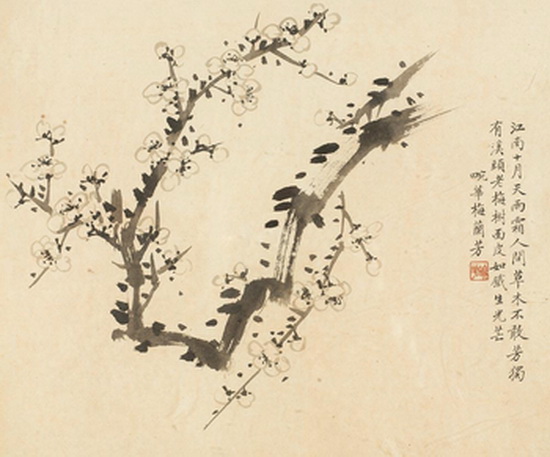 江南十月天雨霜人間草木不敢芳獨
有溪頭老梅樹面皮如鐵生光芒
畹華梅蘭芳